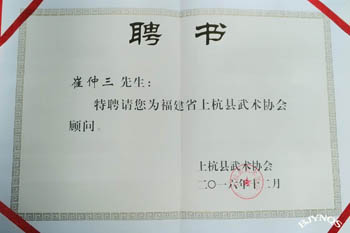 聘书
崔仲三 先生：
特聘请您为福建省上杭县武术协会
顾问。
上杭县武术协会
二〇一六年十二月